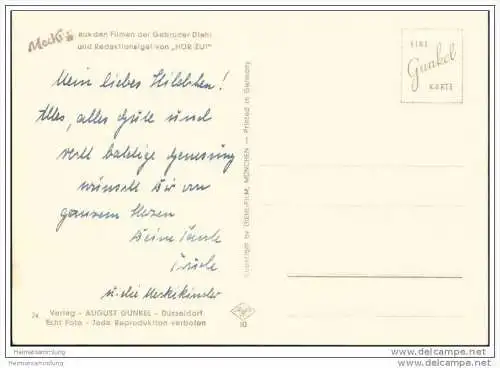 Mecki aus den Filmen der Gebrüder Diehl
und Redaktionsigel von „HÖR ZU!"
EINE
Gunkel
KARTE
Mein liebes !
Alles, alles Gute und
recht baldige Genesung
wünscht Dir von
ganzem Herzen
Deine Tante
Trude
u. die Meckikinder
Copyright by DIEHL-FILM, MÜNCHEN — Printed in Germany
Agfa
74 Verlag - AUGUST GUNKEL - Düsseldorf
Echt Foto - Jede Reproduktion verboten
Heimatsammlung
www.delcampe.net